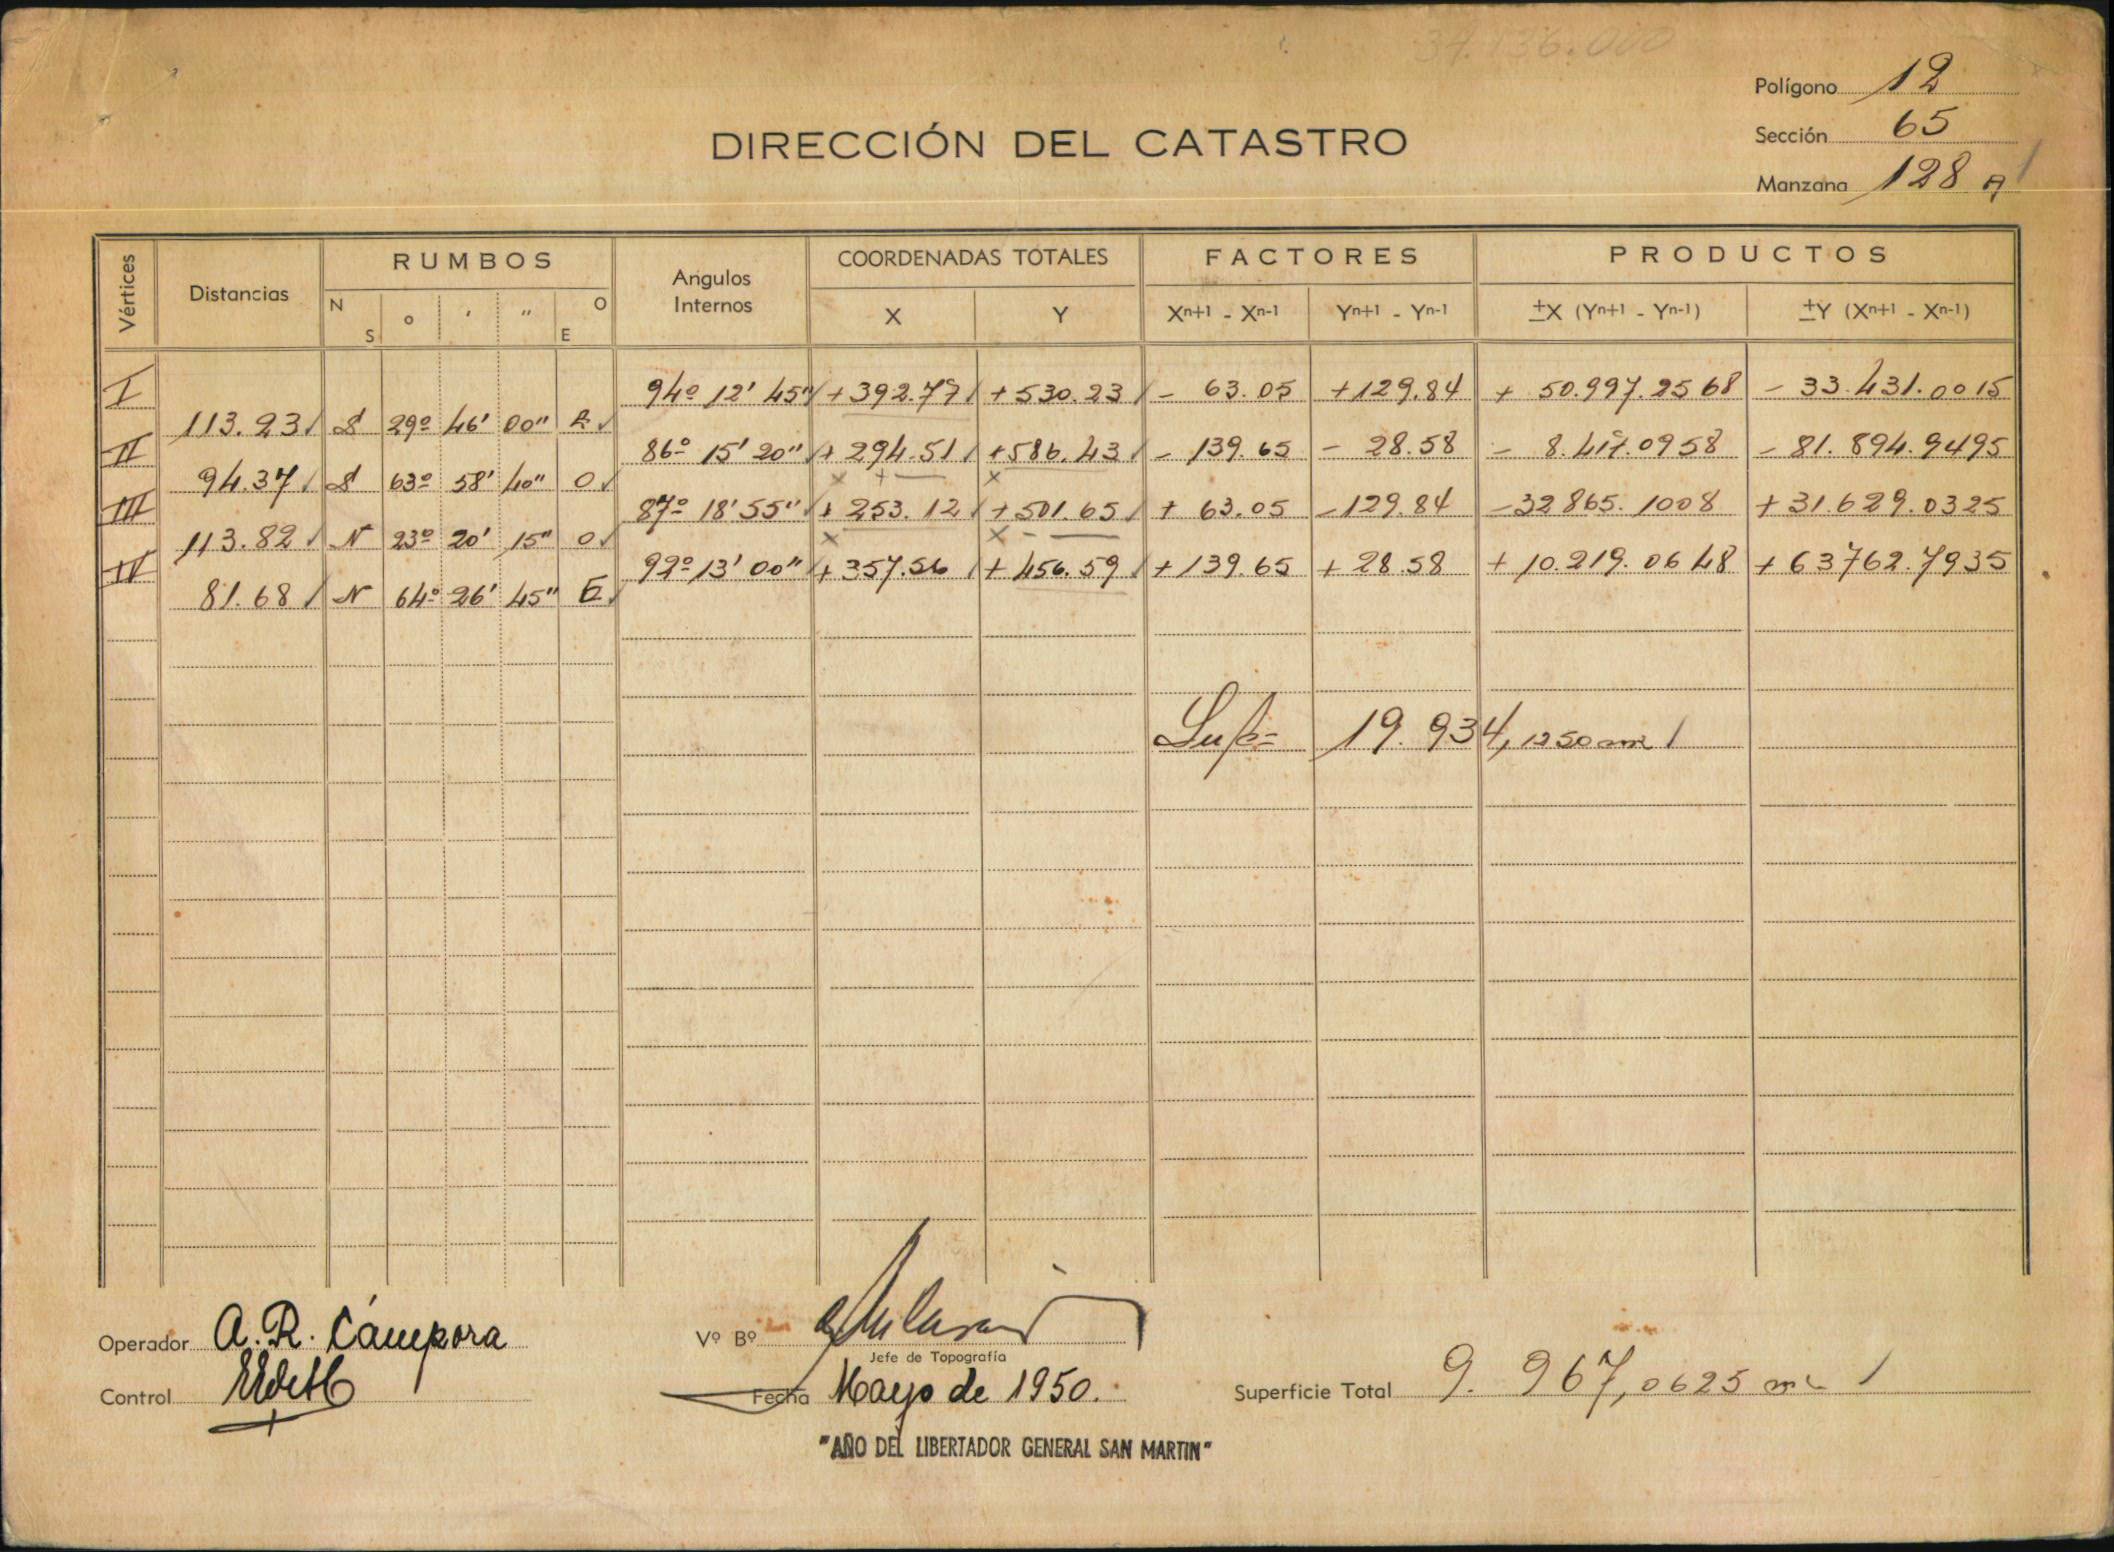 37.136.000
Polígono 12
Sección 65
Manzana 128 A
DIRECCIÓN DEL CATASTRO
Vértices Distancias RUMBOS Angulos Internos COORDENADAS TOTALES FACTORES PRODUCTOS
N S o ' " O E X Y Xn+1 - Xn-1 Yn+1 - Yn-1 ±X (Yn+1 - Yn-1) ±Y (Xn+1 - Xn-1)
I 94º 12' 45" +392.77 +530.23 - 63.05 +129.84 + 50.997.2568 - 33.431.0015
113.23 S 29º 46' 00" E
II 86º 15' 20" + 294.51 +586.43 - 139.65 - 28.58 - 8.417.0958 - 81.894.9495
94.37 S 63º 58' 40" O
III 87º 18' 55" + 253.12 +501.65 + 63.05 -129.84 -32865.1008 +31.629.0325
113.82 N 23º 20' 15" O
IV 92º 13' 00" +357.56 + 456.59 +139.65 + 28.58 + 10.219.0648 + 63762.7935
81.68 N 64º 26' 45" E
Sup= 19.934,1250 m2
Operador A. R. Cámpora
Vº Bº
Jefe de Topografía
Control
Fecha Mayo de 1950.
Superficie Total 9.967,0625 m2
"AÑO DEL LIBERTADOR GENERAL SAN MARTIN"